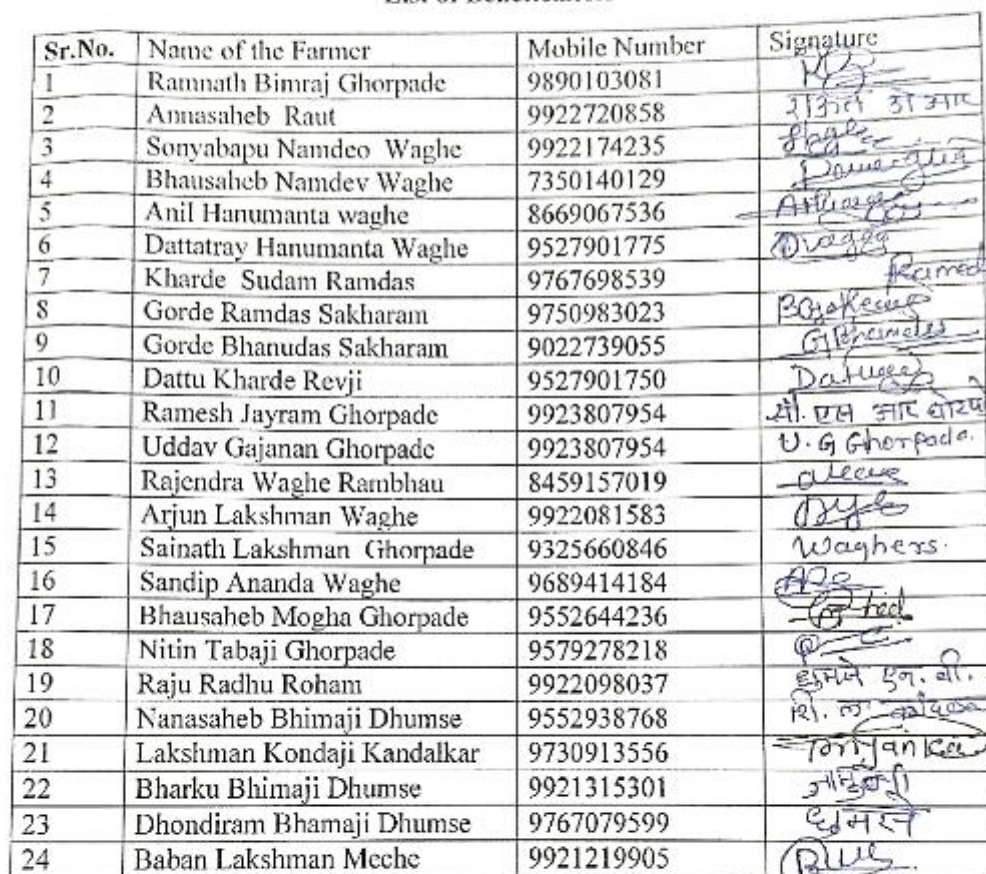 List of Beneficiaries
Sr.No. Name of the Farmer Mobile Number Signature
1 Ramnath Bimraj Ghorpade 9890103081
2 Annasaheb Raut 9922720858 राऊत ओ आर
3 Sonyabapu Namdeo Waghe 9922174235
4 Bhausaheb Namdev Waghe 7350140129
5 Anil Hanumanta waghe 8669067536
6 Dattatray Hanumanta Waghe 9527901775
7 Kharde Sudam Ramdas 9767698539
8 Gorde Ramdas Sakharam 9750983023
9 Gorde Bhanudas Sakharam 9022739055
10 Dattu Kharde Revji 9527901750
11 Ramesh Jayram Ghorpade 9923807954 सी. एस आर घोरपडे
12 Uddav Gajanan Ghorpade 9923807954 U.G Ghorpade.
13 Rajendra Waghe Rambhau 8459157019
14 Arjun Lakshman Waghe 9922081583
15 Sainath Lakshman Ghorpade 9325660846 Waghers.
16 Sandip Ananda Waghe 9689414184
17 Bhausaheb Mogha Ghorpade 9552644236
18 Nitin Tabaji Ghorpade 9579278218
19 Raju Radhu Roham 9922098037 धुमसे एन. बी.
20 Nanasaheb Bhimaji Dhumse 9552938768
21 Lakshman Kondaji Kandalkar 9730913556 Priyanka
22 Bharku Bhimaji Dhumse 9921315301
23 Dhondiram Bhamaji Dhumse 9767079599 धुमसे
24 Baban Lakshman Meche 9921219905